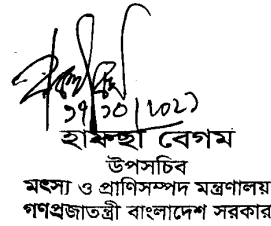 ১৭/১০/২০২১
হাফছা বেগম
উপসচিব
মৎস্য ও প্রাণিসম্পদ মন্ত্রণালয়
গণপ্রজাতন্ত্রী বাংলাদেশ সরকার